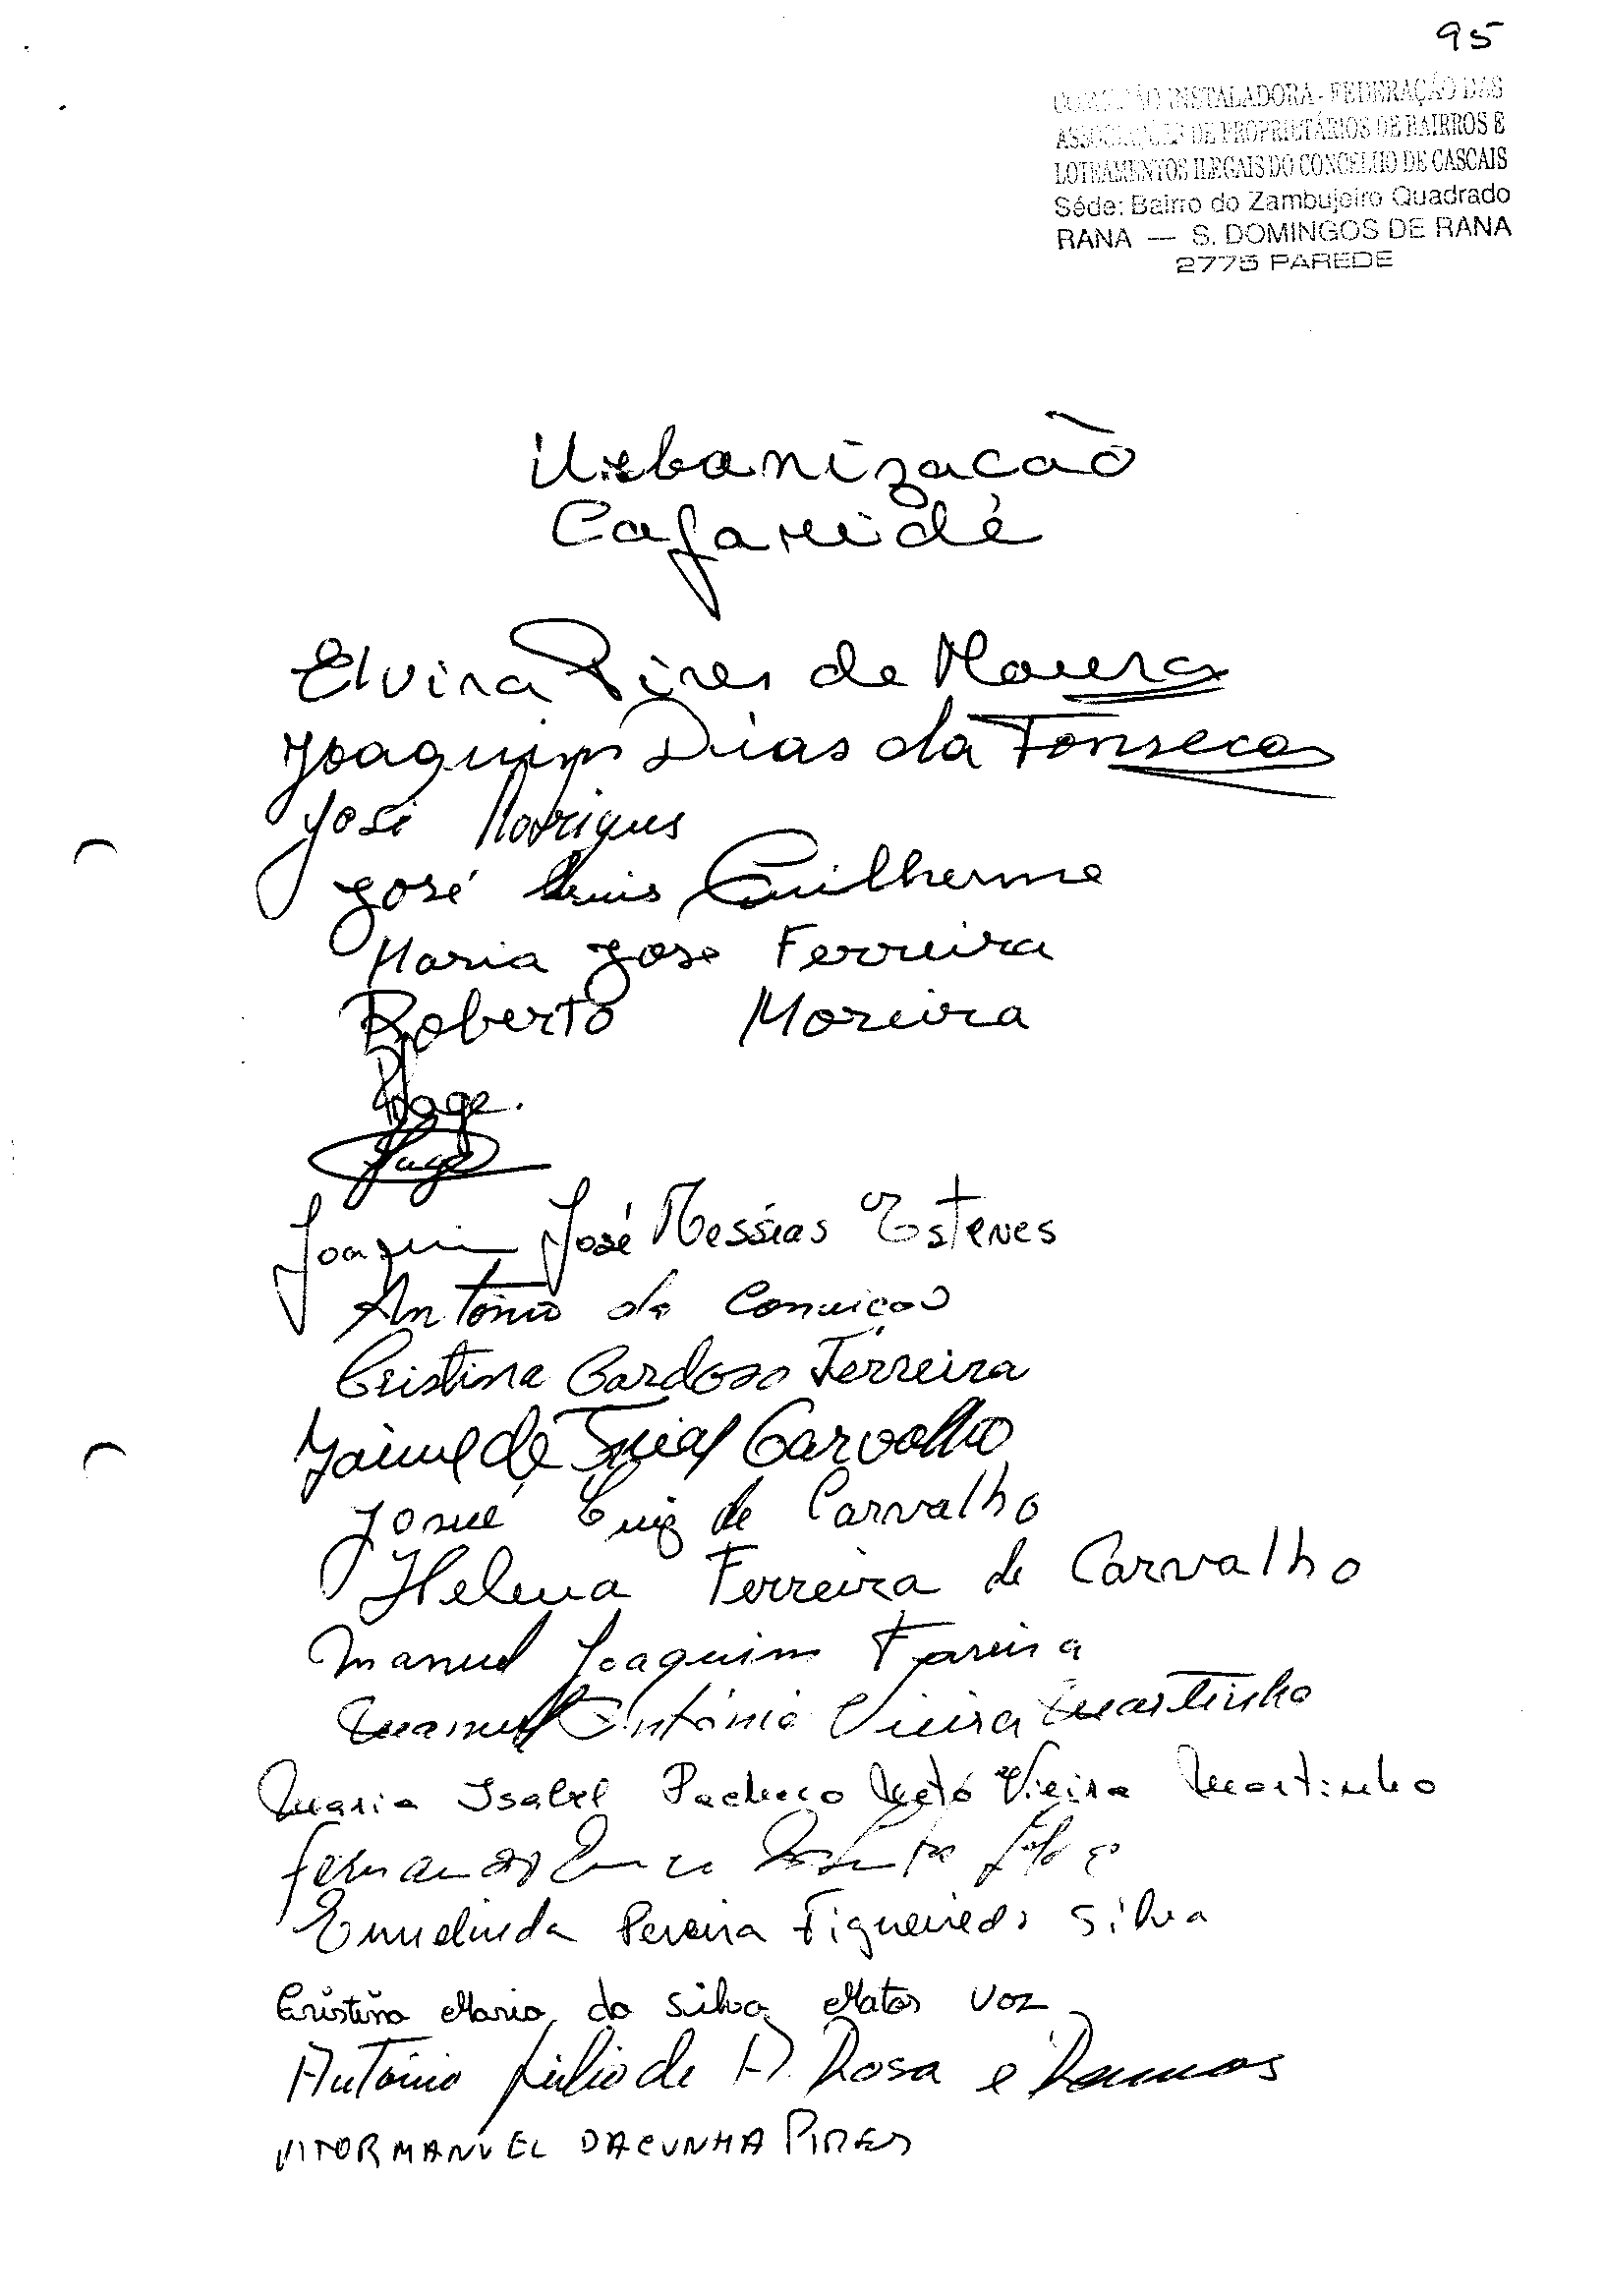 95
COMISSÃO INSTALADORA - FEDERAÇÃO DAS
ASSOCIAÇÕES DE PROPRIETÁRIOS DE BAIRROS E
LOTEAMENTOS ILEGAIS DO CONCELHO DE CASCAIS
Séde: Bairro do Zambujeiro Quadrado
RANA — S. DOMINGOS DE RANA
2775 PAREDE
Urbanização
Elvira Pires de Moura
Joaquim Dias da Fonseca
José Rodrigues
José Luis Guilherme
Maria José Ferreira
Roberto Moreira
Joaquim José Messias Esteves
António da
Cristina Cardoso Ferreira
Jaime de Carvalho
Josué Luiz de Carvalho
Helena Ferreira de Carvalho
Manuel Joaquim
Manuel António Vieira Martinho
Maria Isabel Pacheco Neto Vieira Martinho
Fernando
Pereira Figueiredo Silva
Cristina Maria da Silva Matos Voz
António Júlio de A. Rosa e Ramos
VITOR MANUEL DA CUNHA PIRES